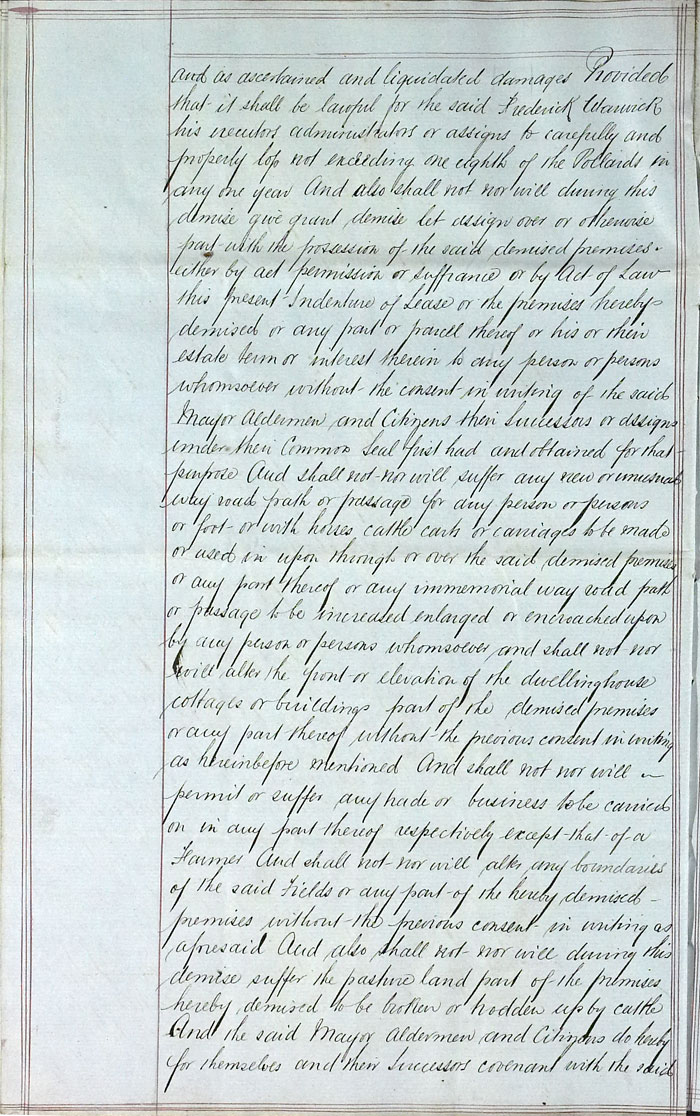 and as ascertained and liquidated damages Provided
that it shall be lawful for the said Frederick Warwick
his executors administrators or assigns to carefully and
properly lop not exceeding one eighth of the Pollards in
any one year And also shall not nor will during this
demise give grant demise let assign over or otherwise
part with the possession of the said demised premises
either by act permission or suffrance or by Act of Law
this present Indenture of Lease or the premises hereby
demised or any part or parcell thereof or his or their
estate term or interest therein to any person or persons
whomsoever without the consent in writing of the said
Mayor Aldermen and Citizens their Successors or assigns
under their Common Seal first had and obtained for that
purpose And shall not nor will suffer any new or unusual
way road path or passage for any person or persons
or foot or with horses cattle carts or carriages to be made
or used in upon through or over the said demised premises
or any part thereof or any immemorial way road path
or passage to be increased enlarged or encroached upon
by any person or persons whomsoever and shall not nor
will alter the front or elevation of the dwellinghouse
cottages or buildings part of the demised premises
or any part thereof without the previous consent in writing
as hereinbefore mentioned And shall not nor will
permit or suffer any trade or business to be carried
on in any part thereof respectively except that of a
Farmer And shall not nor will alter any boundaries
of the said Fields or any part of the hereby demised
premises without the previous consent in writing as
aforesaid And also shall not nor will during this
demise suffer the pasture land part of the premises
hereby demised to be broken or trodden up by cattle
And the said Mayor Aldermen and Citizens do hereby
for themselves and their Successors covenant with the said